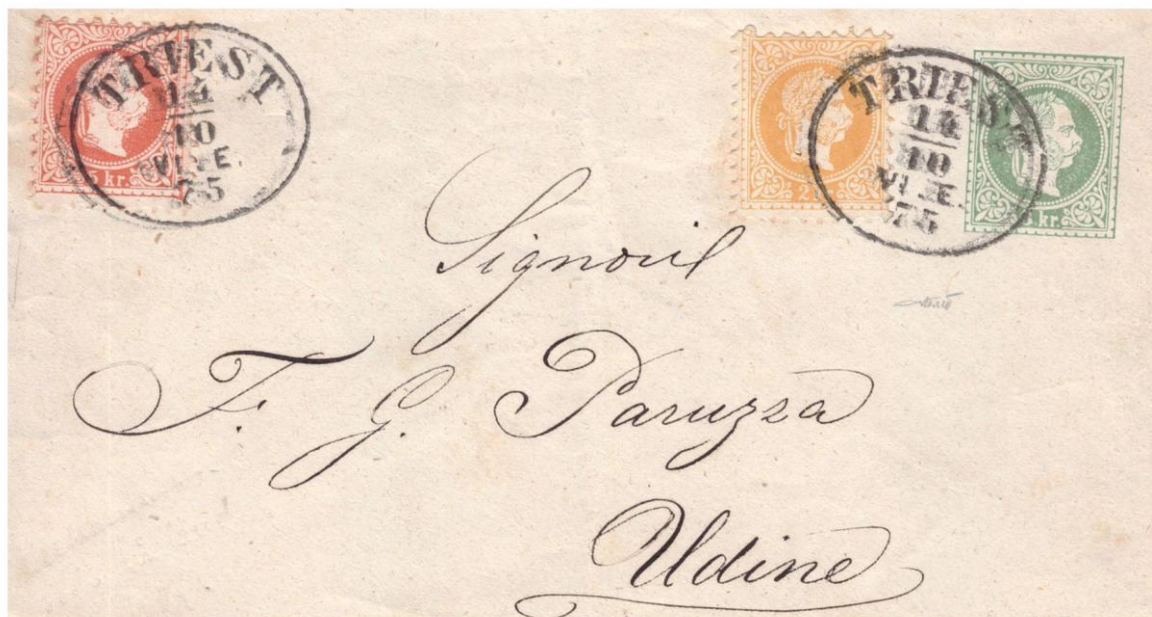 TRIEST
14
10
75
5 kr.
TRIEST
14
10
VI.E.
75
2
3 kr.
Signori
F. G. Paruzza
Udine